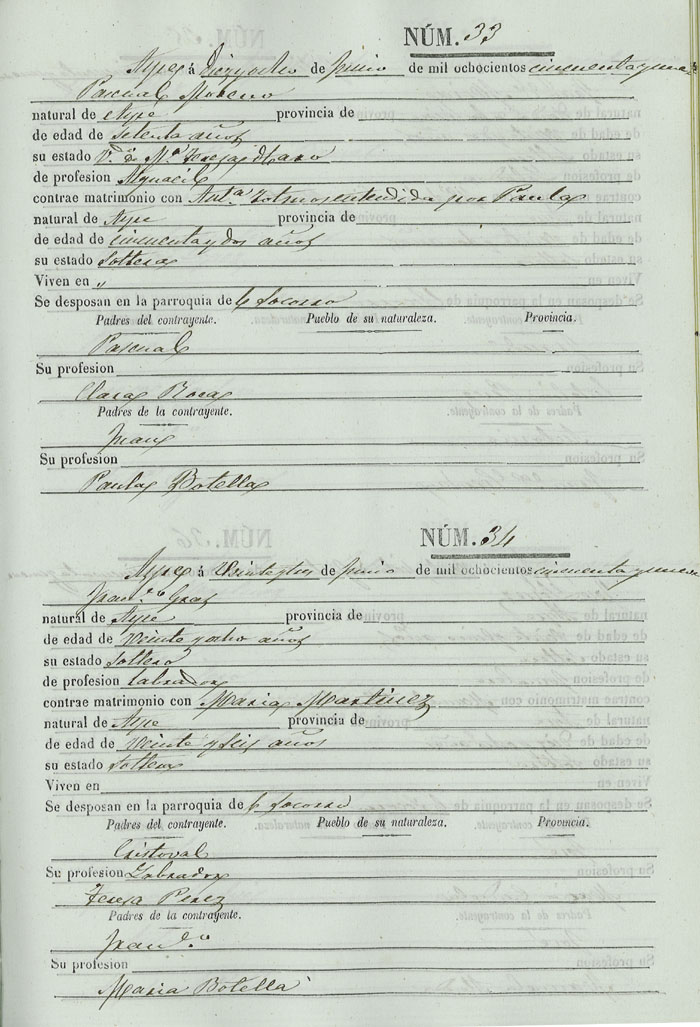 NÚM. 33
Aspe á Diez y ocho de Junio de mil ochocientos cincuenta y nueve
Pascual Moreno
natural de Aspe provincia de
de edad de setenta años
su estado V.do de M.a Teresa
de profesion Alguacil
contrae matrimonio con Ant.a por Paula
natural de Aspe provincia de
de edad de cincuenta y dos años
su estado Soltera
Viven en „
Se desposan en la parroquia de Socorro
Padres del contrayente. Pueblo de su naturaleza. Provincia.
Pascual
Su profesion
Clara Roca
Padres de la contrayente.
Juan
Su profesion
Paula Botella
NÚM. 34
Aspe á Veinte y tres de Junio de mil ochocientos cincuenta y nueve
Fran.co
natural de Aspe provincia de
de edad de veinte y ocho años
su estado Soltero
de profesion Labrador
contrae matrimonio con Maria Martinez
natural de Aspe provincia de
de edad de veinte y seis años
su estado Soltera
Viven en
Se desposan en la parroquia de Socorro
Padres del contrayente. Pueblo de su naturaleza. Provincia.
Cristoval
Su profesion Labrador
Teresa Perez
Padres de la contrayente.
Fran.co
Su profesion
Maria Botella